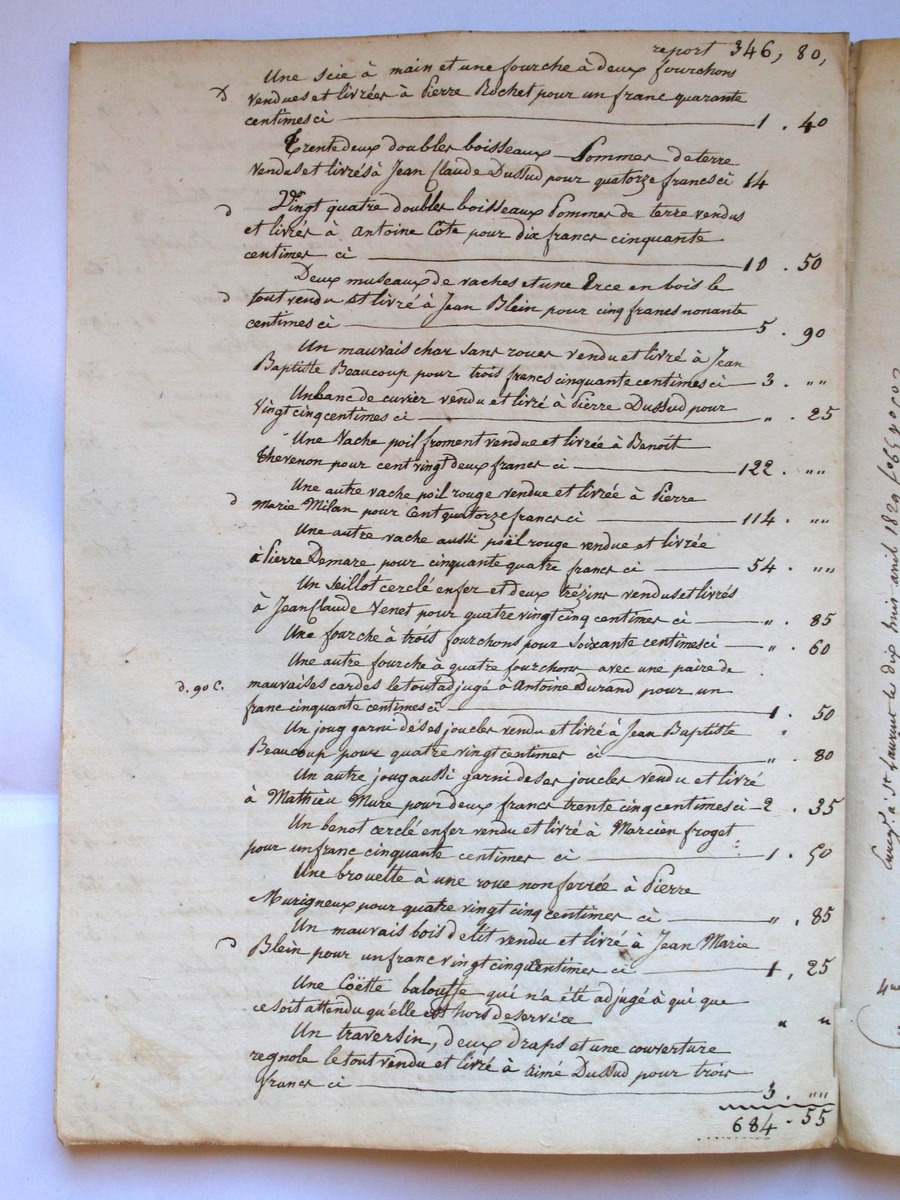 report 346, 80,
Une scie à main et une fourche à deux fourchons
d vendues et livrées à Pierre Rochet pour un franc quarante
centimes ci 1 . 40
Trente deux doubles boisseaux Pommes de terre
vendus et livrés à Jean Claude Dussud pour quatorze francs ci 14
Vingt quatre doubles boisseaux Pommes de terre vendus
d et livrés à Antoine Cote pour dix francs cinquante
centimes ci 10 . 50
Deux museaux de vaches et une Arce en bois le
d tout vendu et livré à Jean Blein pour cinq francs nonante
centimes ci 5 . 90
Un mauvais char sans roues vendu et livré à Jean
Baptiste Beaucoup pour trois francs cinquante centimes ci 3 . ""
Un banc de cuvier vendu et livré à Pierre Dussud pour
vingt cinq centimes ci " . 25
Une Vache poil froment vendue et livrée à Benoit
Thevenon pour cent vingt deux francs ci 122 . ""
Une autre vache poil rouge vendue et livrée à Pierre
d Marie Milan pour Cent quatorze francs ci 114 . ""
Une autre vache aussi poël rouge vendue et livrée
à Pierre Demare pour cinquante quatre francs ci 54 . ""
Un Seillot cerclé en fer et deux trézins vendus et livrés
à Jean Claude Venet pour quatre vingt cinq centimes ci " . 85
Une fourche à trois fourchons pour Soixante centimes ci " . 60
Une autre fourche à quatre fourchons avec une paire de
d. 90 c. mauvaises cardes le tout adjugé à Antoine Durand pour un
franc cinquante centimes ci 1 . 50
Un joug garni de ses joucles vendu et livré à Jean Baptiste
Beaucoup pour quatre vingt centimes ci " . 80
Un autre joug aussi garni de ses joucles vendu et livré
à Mathieu Mure pour deux francs trente cinq centimes ci 2 . 35
Un benot cerclé en fer vendu et livré à Marcien froget
pour un franc cinquante centimes ci 1 . 50
Une brouette à une roue non ferrée à Pierre
Murigneux pour quatre vingt cinq centimes ci " . 85
Un mauvais bois de lit vendu et livré à Jean Marie
d Blein pour un franc vingt cinq centimes ci 1 , 25
Une Coëtte balouffe qui n'a été adjugé à qui que
ce soit attendu qu'elle est hors de service " "
Un traversin, deux draps et une couverture
regnole le tout vendu et livré à aimé Dussud pour trois
francs ci 3 . ""
684 . 55
à St Laurent le dix huit avril 1829 fo